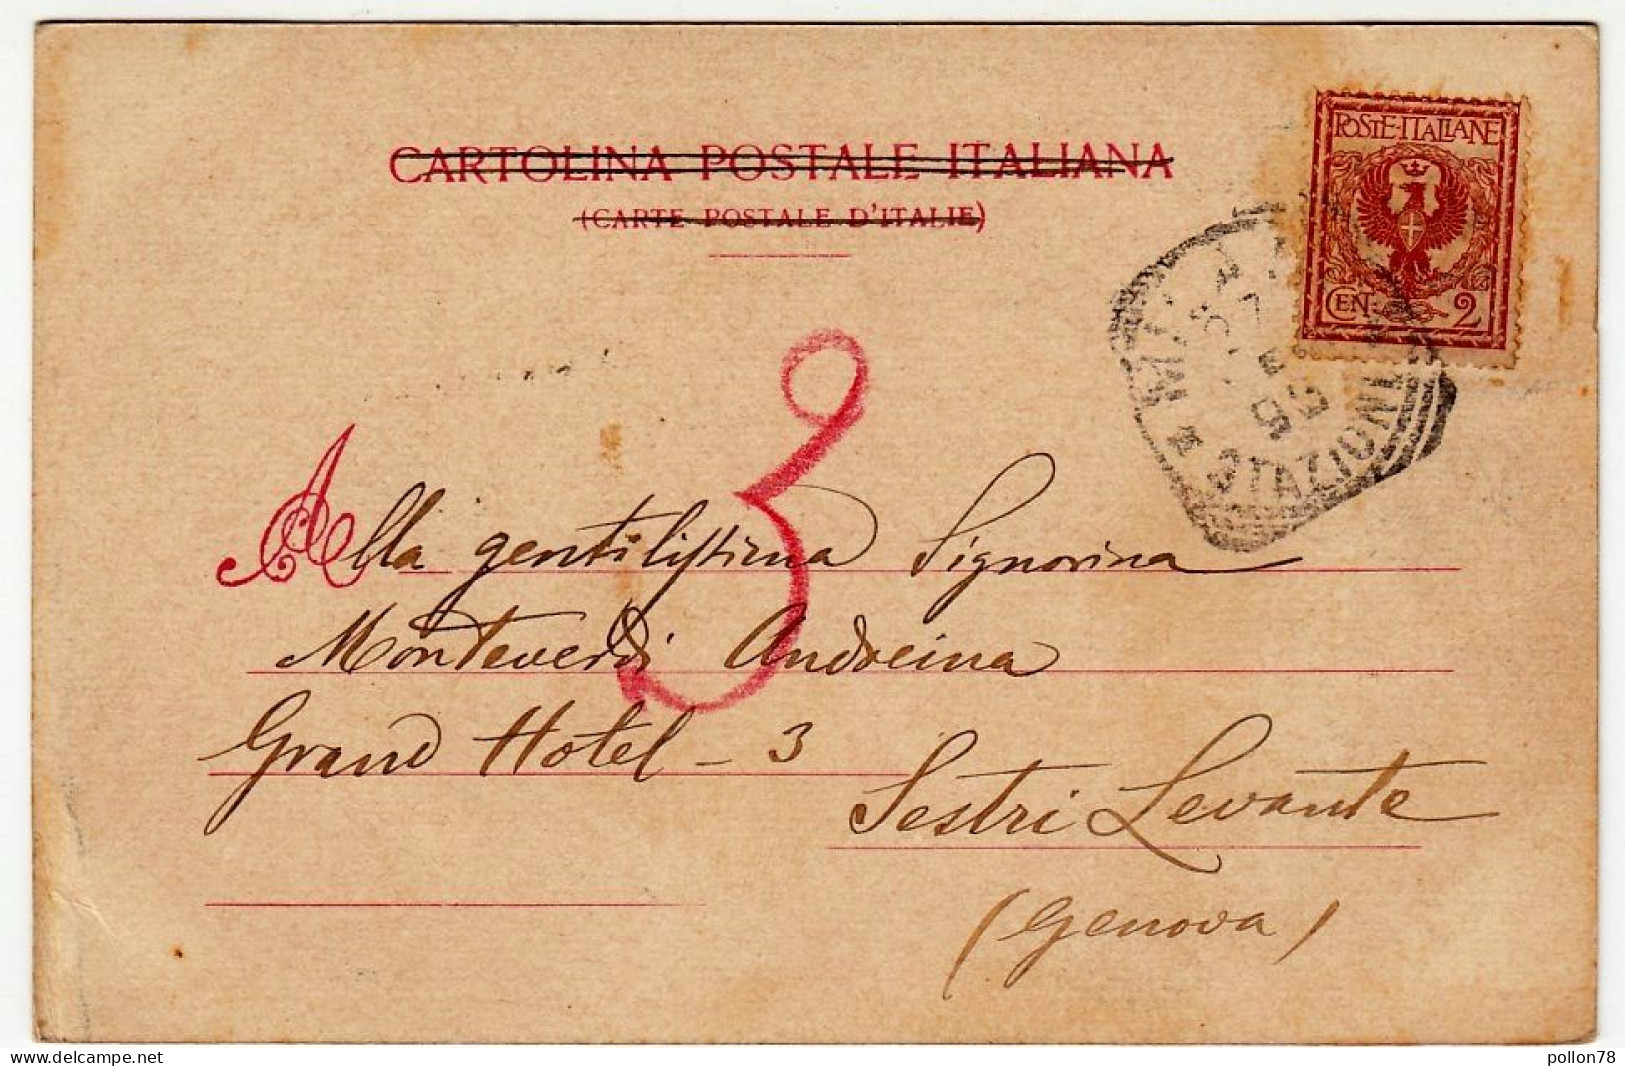 CARTOLINA POSTALE ITALIANA
(CARTE POSTALE D'ITALIE)
POSTE·ITALIANE
CEN. 2
STAZIONE
3
Alla gentilissima Signorina
Monteverdi Andreina
Grand Hotel - 3
Sestri Levante
(Genova)
delcampe.net
pollon78